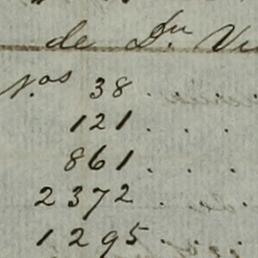 de Dn. Vi
Nos 38 .
121 . . .
861 . . .
2372 . . .
1295 . . .